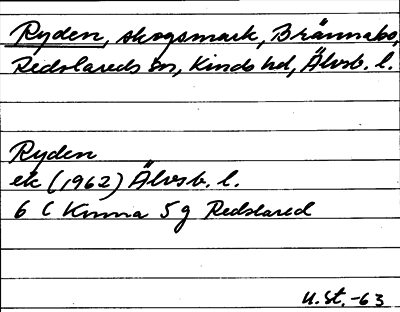 Ryden, skogsmark, Brännabo,
Redslareds sn, Kinds hd, Älvsb. l.
Ryden
ek (1962) Älvsb. l.
6 C Kinna 5 g Redslared
U.St.-63